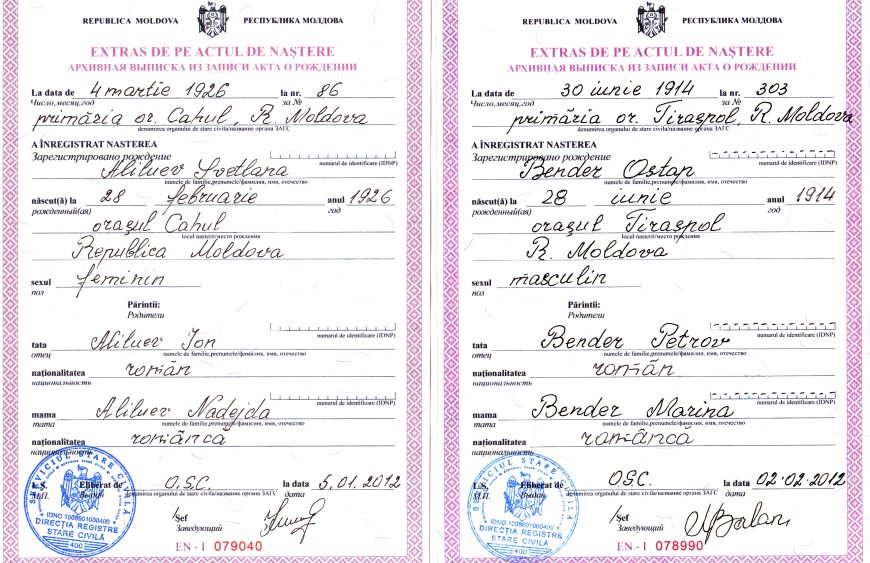 REPUBLICA MOLDOVA РЕСПУБЛИКА МОЛДОВА
EXTRAS DE PE ACTUL DE NAȘTERE
АРХИВНАЯ ВЫПИСКА ИЗ ЗАПИСИ АКТА О РОЖДЕНИИ
La data de 4 martie 1926 la nr. 86
Число,месяц,год за №
primăria or. Cahul, R. Moldova
denumirea organului de stare civila/название органа ЗАГС
A ÎNREGISTRAT NASTEREA
Зарегистрировано рождение numarul de identificare (IDNP)
Aliluev Svetlana
numele de familie,prenumele/фамилия, имя, отчество
născut(ă) la 28 februarie anul 1926
рожденный(ая) год
orașul Cahul
locul nasterii/место рождения
Republica Moldova
sexul feminin
пол
Părintii:
Родители
numarul de identificare (IDNP)
tata Aliluev Ion
отец numele de familie,prenumele/фамилия, имя, отчество
naționalitatea român
национальность
numarul de identificare (IDNP)
mama Aliluev Nadejda
мата numele de familie,prenumele/фамилия, имя, отчество
naționalitatea româncă
национальность
L.S. Eliberat de O.S.C. la data 5.01.2012
М.П. Выдан denumirea organului de stare civila/название органа ЗАГС дата
Șef
Заведующий
SERVICIUL STARE CIVILĂ
IDNO 1006601000400
DIRECȚIA REGISTRE
STARE CIVILĂ
400
EN - I 079040
REPUBLICA MOLDOVA РЕСПУБЛИКА МОЛДОВА
EXTRAS DE PE ACTUL DE NAȘTERE
АРХИВНАЯ ВЫПИСКА ИЗ ЗАПИСИ АКТА О РОЖДЕНИИ
La data de 30 iunie 1914 la nr. 303
Число,месяц,год за №
primăria or. Tiraspol, R. Moldova
denumirea organului de stare civila/название органа ЗАГС
A ÎNREGISTRAT NASTEREA
Зарегистрировано рождение numarul de identificare (IDNP)
Bender Ostap
numele de familie,prenumele/фамилия, имя, отчество
născut(ă) la 28 iunie anul 1914
рожденный(ая) год
orașul Tiraspol
locul nasterii/место рождения
R. Moldova
sexul masculin
пол
Părintii:
Родители
numarul de identificare (IDNP)
tata Bender Petrov
отец numele de familie,prenumele/фамилия, имя, отчество
naționalitatea român
национальность
numarul de identificare (IDNP)
mama Bender Marina
мата numele de familie,prenumele/фамилия, имя, отчество
naționalitatea româncă
национальность
L.S. Eliberat de O.S.C. la data 02.02.2012
М.П. Выдан denumirea organului de stare civila/название органа ЗАГС дата
Șef
Заведующий
SERVICIUL STARE CIVILĂ
IDNO 1006601000400
DIRECȚIA REGISTRE
STARE CIVILĂ
400
EN - I 078990